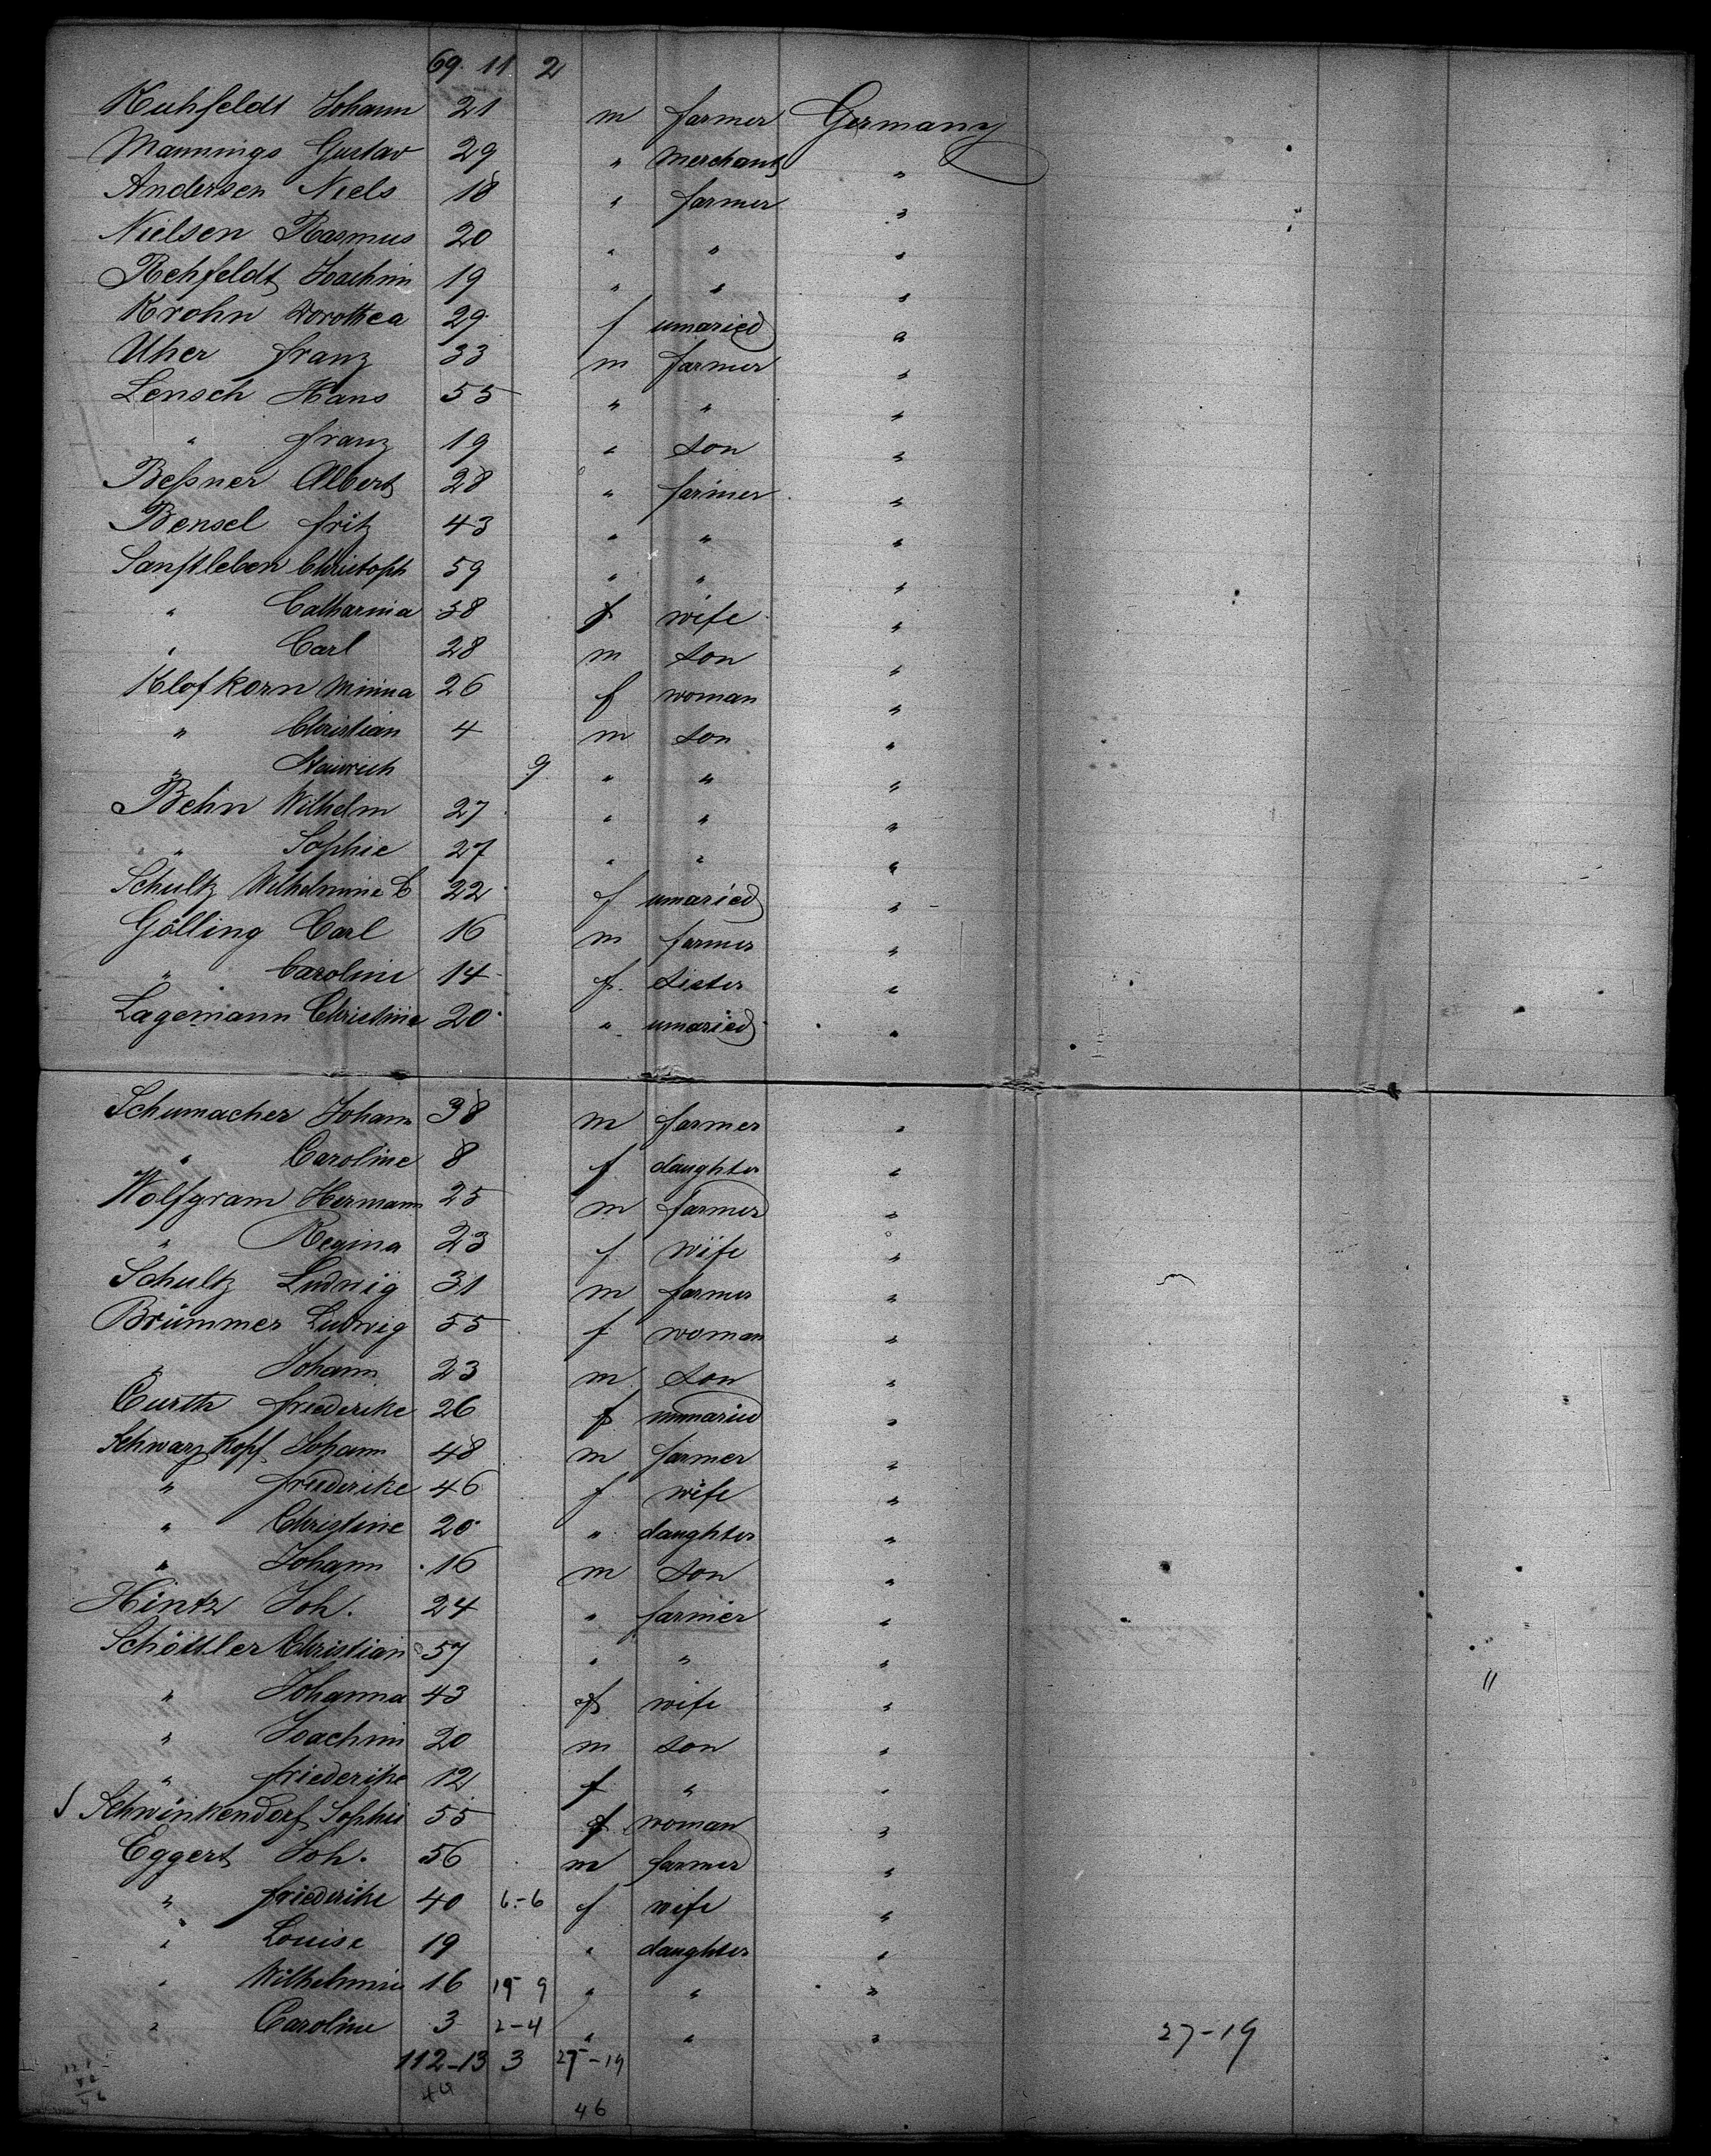 69. 11 2
Kuhfeldt Johann 21 m farmer Germany
Mannings Gustav 29 " merchant "
Andersen Niels 18 " farmer "
Nielsen Rasmus 20 " " "
Rehfeldt Joachim 19 " " "
Krohn Dorothea 29 f umaried "
Uher Franz 33 m farmer "
Lensch Hans 55 " " "
" Franz 19 " son "
Beßner Albert 28 " farmer "
Bensel Fritz 43 " " "
Sanftleben Christoph 59 " " "
" Catharina 58 f wife "
" Carl 28 m son "
Klofkorn Minna 26 f woman "
" Christian 4 m son "
" Heinrich 9 " " "
Behn Wilhelm 27 " " "
" Sophie 27 " " "
Schultz Wilhelmine C 22 f umaried "
Gölling Carl 16 m farmer "
" Caroline 14 f. sister "
Lagemann Christine 20 " umaried "
Schumacher Johann 38 m farmer "
" Caroline 8 f daughter "
Wolfgram Hermann 25 m farmer "
" Regina 23 f wife "
Schultz Ludwig 31 m farmer "
Brümmer Ludwig 55 f woman "
" Johann 23 m son "
Curth Friederike 26 f unmaried "
Schwarzkopf Johann 48 m farmer "
" Friederike 46 f wife "
" Christine 20 " daughter "
" Johann 16 m son "
Hintz Joh. 24 " farmer "
Schöttler Christian 57 " " "
" Johanna 43 f wife "
" Joachim 20 m son "
" Friederike 12 f " "
Schwinkendorf Sophie 55 f woman "
Eggert Joh. 56 m farmer "
" Friederike 40 6-6 f wife "
" Louise 19 " daughter "
" Wilhelmine 16 15 9 " " "
" Caroline 3 2-4 " " " 27-19
112-13 3 27-19
46